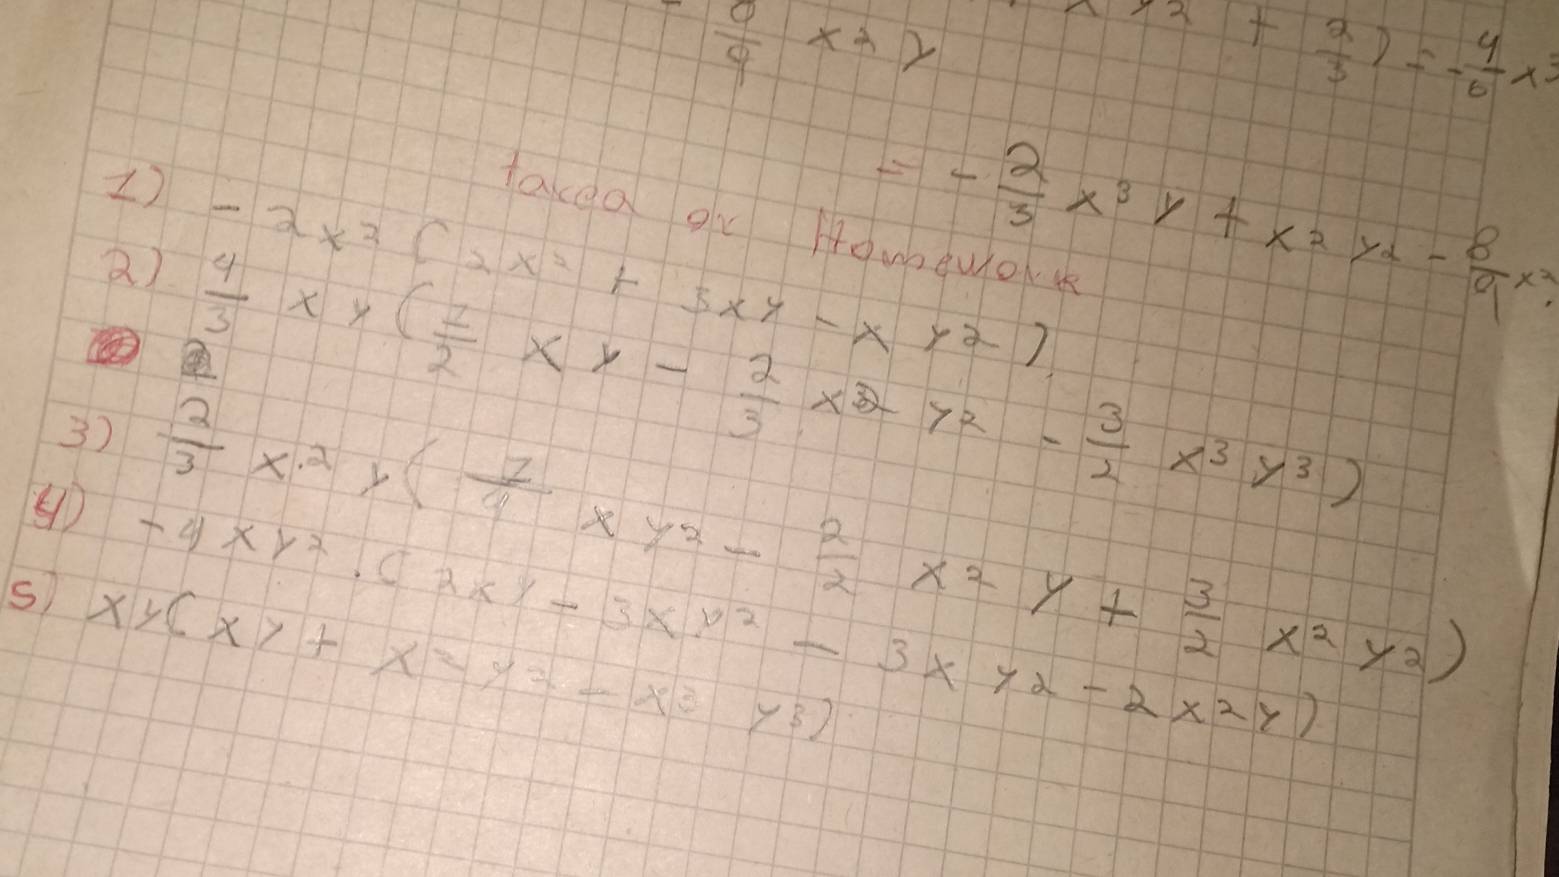 8/9 x² y
y² + 2/3) = -4/6 x³
= - 2/3 x³ y + x² y² - 8/9 x²
Homework
1) - 2x² ( 2x² + 3xy - x y² )
2) 4/3 x y ( 1/2 x y - 2/3 x² y² - 3/2 x³ y³ )
3) 2/3 x² y ( 1/4 x y² - 2/2 x² y + 3/2 x² y² )
4) - 4 x y² · ( 2xy - 3x y² - 3x y² - 2x² y )
5) xy( xy + x² y² - x³ y³ )